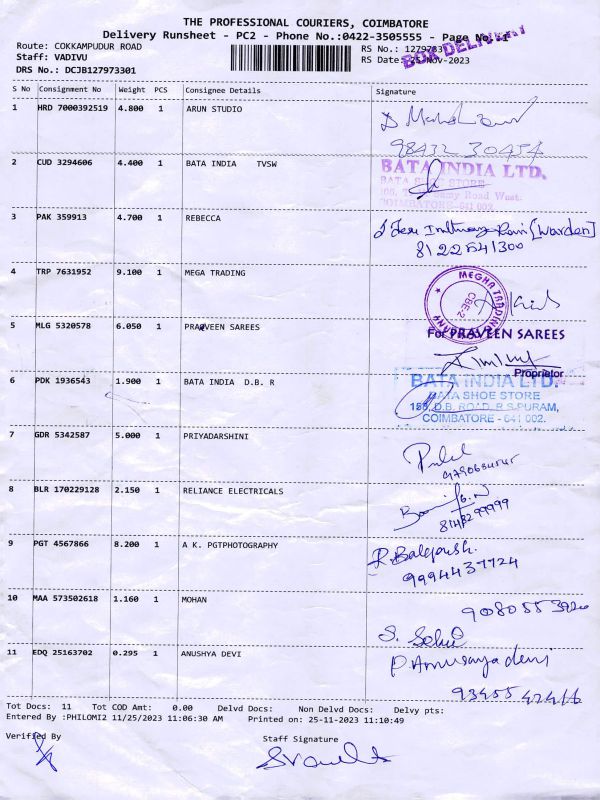 THE PROFESSIONAL COURIERS, COIMBATORE
Delivery Runsheet - PC2 - Phone No.:0422-3505555 - Page No.:1
BOX DELIVERY
Route: COKKAMPUDUR ROAD
RS No.: 1279733
Staff: VADIVU
RS Date: 25-NOV-2023
DRS No.: DCJB127973301
S No Consignment No Weight PCS Consignee Details Signature
1 HRD 7000392519 4.800 1 ARUN STUDIO
98432 30454
2 CUD 3294606 4.400 1 BATA INDIA TVSW
BATA INDIA LTD.
BATA SHOE STORE
Road West.
COIMBATORE-641 002.
3 PAK 359913 4.700 1 REBECCA
[Warden]
8122541300
4 TRP 7631952 9.100 1 MEGA TRADING
MEGHA TRADING COMPANY
CBE-2
5 MLG 5320578 6.050 1 PRAVEEN SAREES
For PRAVEEN SAREES
Proprietor
6 PDK 1936543 1.900 1 BATA INDIA D.B. R
BATA INDIA LTD.
BATA SHOE STORE
155, D.B. ROAD, R.S.PURAM,
COIMBATORE - 641 002.
7 GDR 5342587 5.000 1 PRIYADARSHINI
8 BLR 170229128 2.150 1 RELIANCE ELECTRICALS
9 PGT 4567866 8.200 1 A K. PGTPHOTOGRAPHY
9994437724
10 MAA 573502618 1.160 1 MOHAN
11 EDQ 25163702 0.295 1 ANUSHYA DEVI
P. Anusaya devi
93455 42416
Tot Docs: 11 Tot COD Amt: 0.00 Delvd Docs: Non Delvd Docs: Delvy pts:
Entered By :PHILOMI2 11/25/2023 11:06:30 AM Printed on: 25-11-2023 11:10:49
Verified By Staff Signature